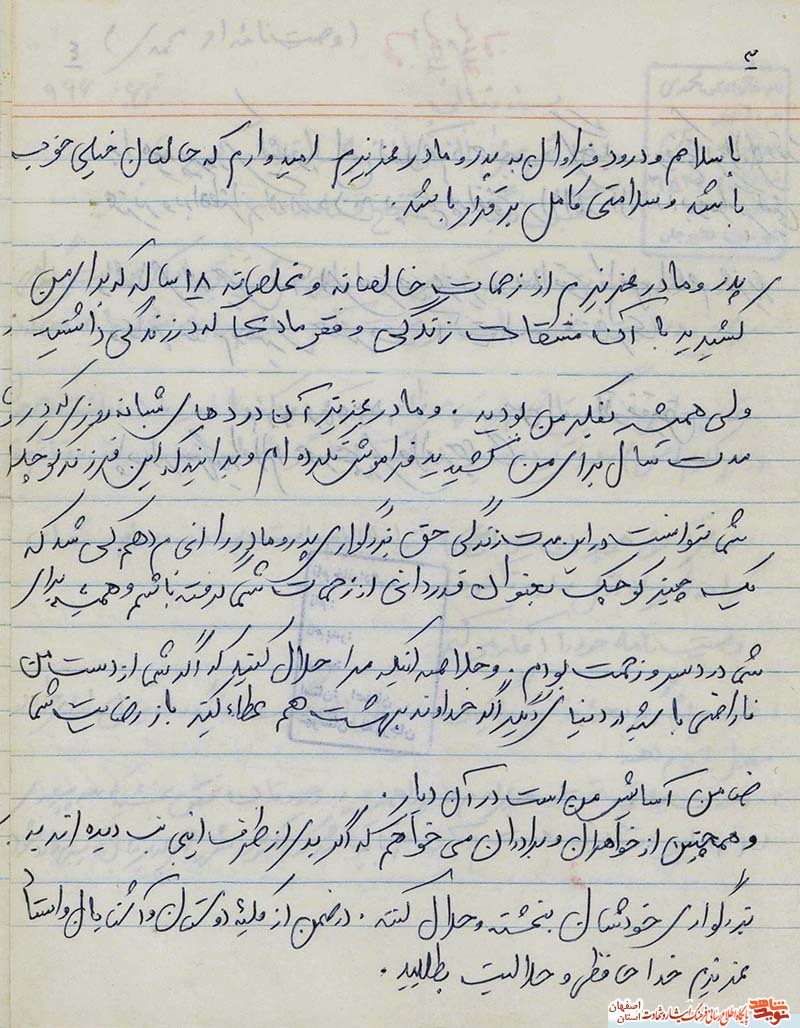 ۳
با سلام و درود فراوان به پدر و مادر عزیزم امیدوارم که حالتان خیلی خوب
باشد و سلامتی کامل برقرار باشد.
پدر و مادر عزیزم از زحمات خالصانه و مخلصانه ۱۸ ساله که برای من
کشیدید با آن مشقات زندگی و فقر مادی که در زندگی داشتید
ولی همیشه بفکر من بودید . و مادر عزیز آن دردهای شبانه روزی که در
مدت سال برای من کشیدید فراموش نکرده ام و بدانید که این فرزند کوچک
شما نتوانست در این مدت زندگی حق بزرگواری پدر و مادر را و هم کی شد که
یک چیز کوچک بعنوان قدردانی از زحمات شما گرفته باشم و همیشه برای
شما دردسر و زحمت بودم. و خلاصه اینکه مرا حلال کنید که اگر شما از دست من
ناراضی باشید در دنیای دیگر اگر خداوند بهشت هم عطاء کند باز رضایت شما
ضامن آسایش من است در آن دیار.
و همچنین از خواهران و برادران می خواهم که اگر بدی از طرف اینجانب دیده اند به
بزرگواری خودشان بخشته و حلال کنند . در ضمن از کلیه دوستان و آشنایان و
عزیزم خداحافظی و حلالیت بطلبید .
نوید شاهد
اصفهان
استان
پایگاه اطلاع رسانی فرهنگ ایثار و شهادت